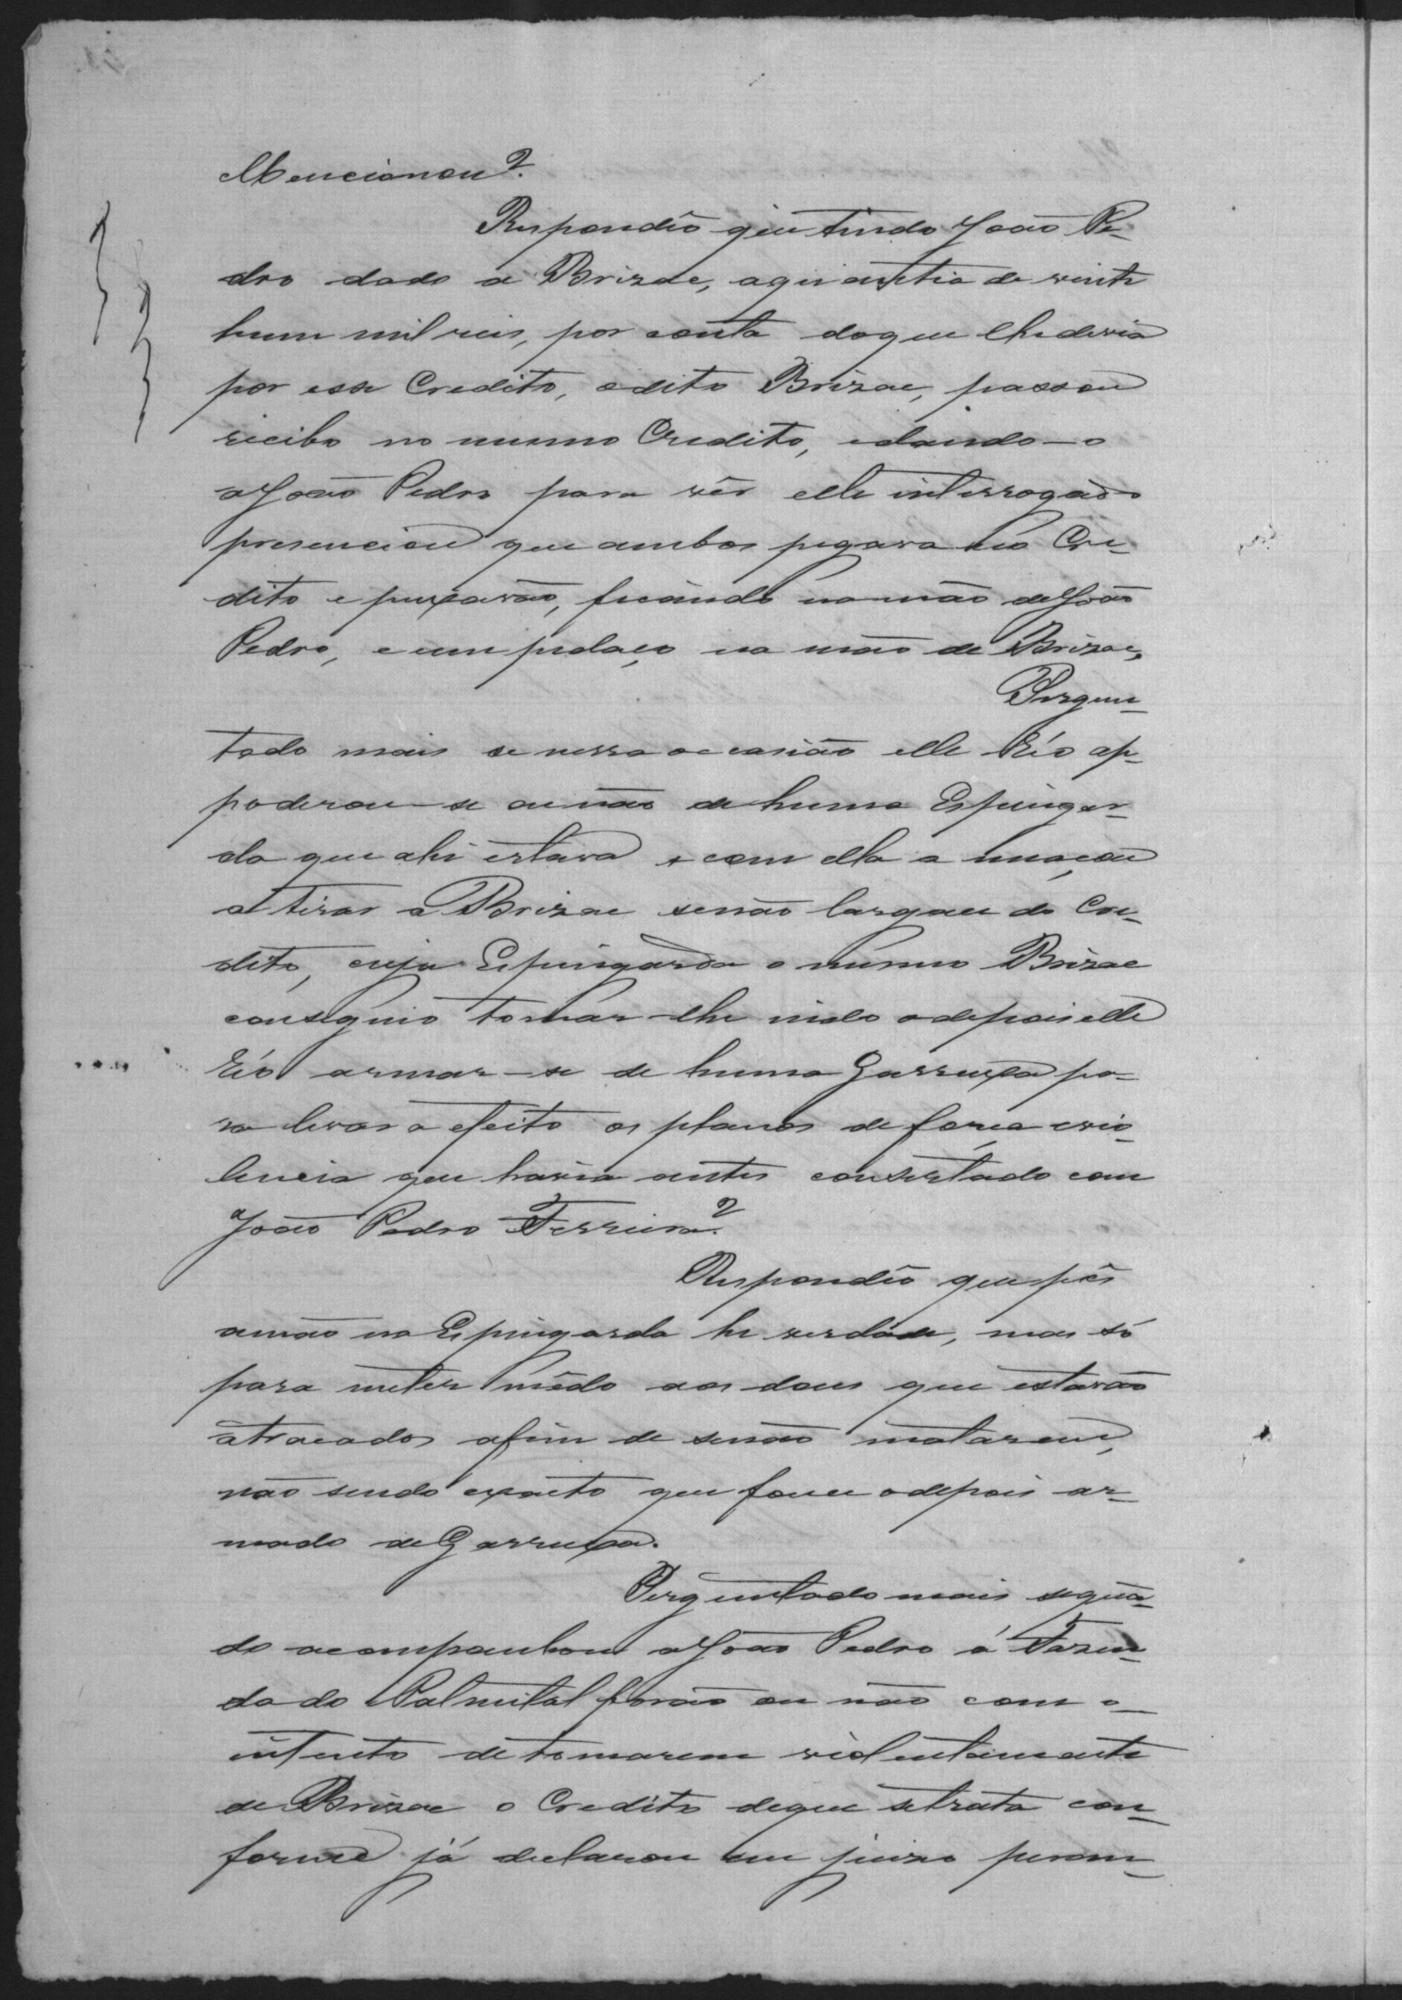 Mencionou?
Respondêo que tendo João Pe-
dro dado a Brizae, a quantia de vinte
hum mil reis, por conta do que lhe devia
por esse Credito, o dito Brizae, passou
recibo no mesmo Credito, e dando-o
a João Pedro para vêr elle interrogado
presenciou que ambos pegara no Cre-
dito e puxarão, ficando na mão de João
Pedro, e um pedaço na mão de Brizae,
Pergun-
tado mais se nessa occasião elle Réo ap-
poderou-se ou não de huma Espingar-
da que ahi estava e com ella a meaçou
atirar a Brizae senão largace do Cre-
dito, cuja Espingarda o mesmo Brizae
conseguio tomar-lhe indo a depois elle
Réo armar-se de huma Garruxa pa-
ra levar a efeito os planos de força e vio-
lencia que havia antes consertado com
João Pedro Ferreira?
Respondêo que pôs
a mão na Espingarda he verdade, mas só
para meter mêdo aos dous que estavão
atracados afim de senão matarem,
não sendo exacto que foce a depois ar-
mado de Garruxa.
Perguntado mais se quan-
do acompanhou a João Pedro á Fazen-
da do Palmital forão ou não com o
intento de tomarem violentamente
de Brizae o Credito de que se trata con-
forme já declarou em juizo peran-